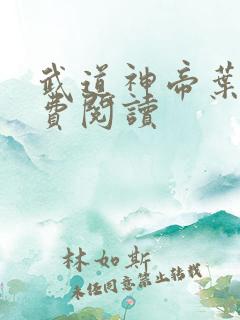 武道神帝葉
費閱讀
林如斯
未經同意禁止轉載